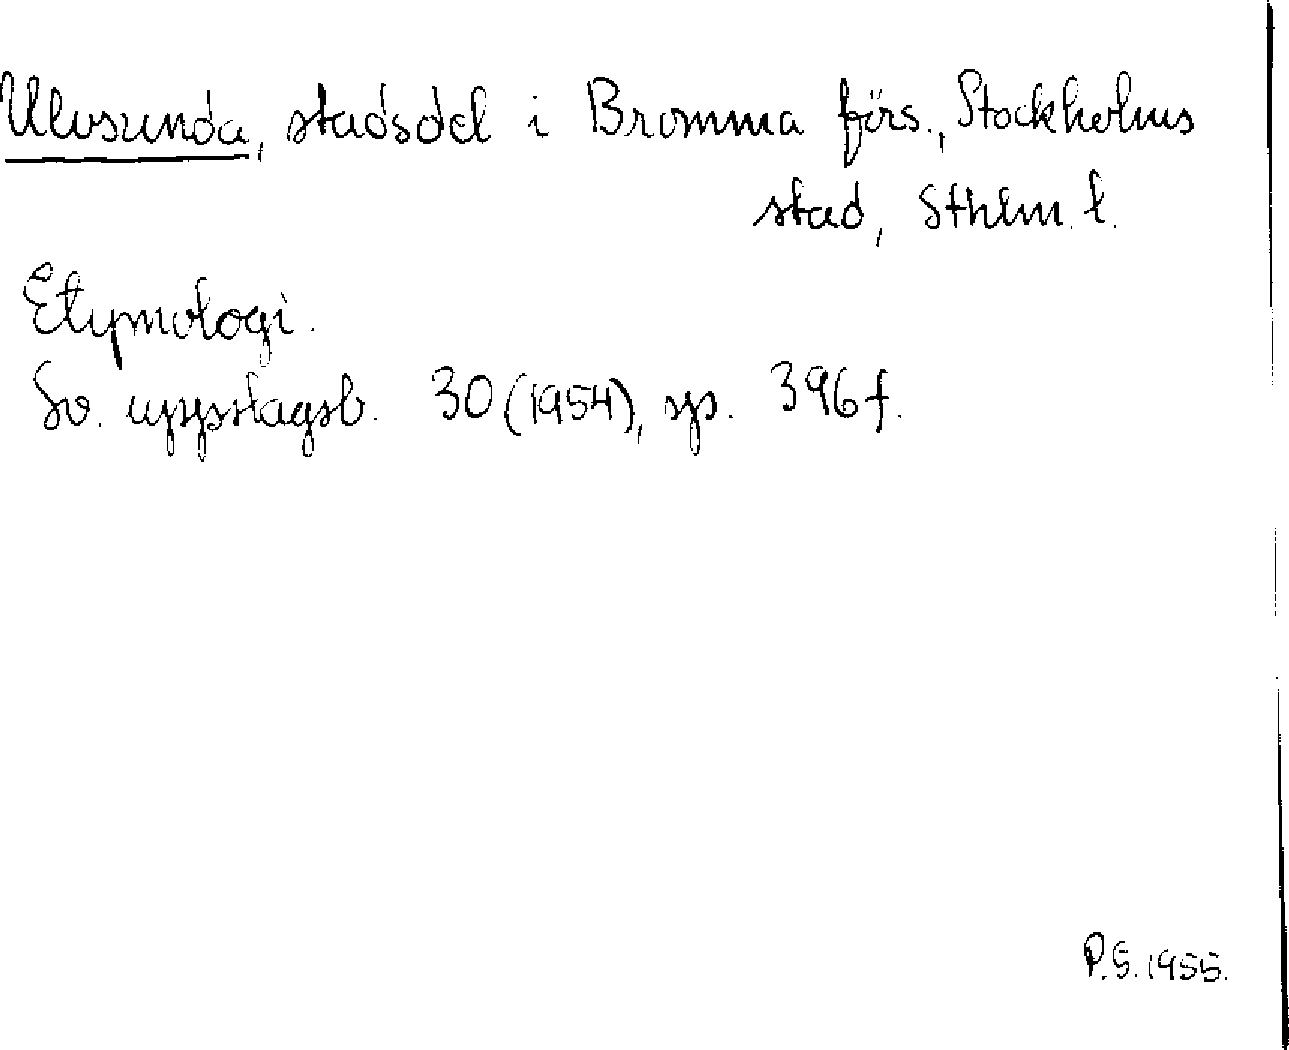 Ulvsunda, stadsdel i Bromma förs., Stockholms
stad, Sthlm. l.
Etymologi.
Sv. uppslagsb. 30 (1954), sp. 396 f.
P.S. 1955.